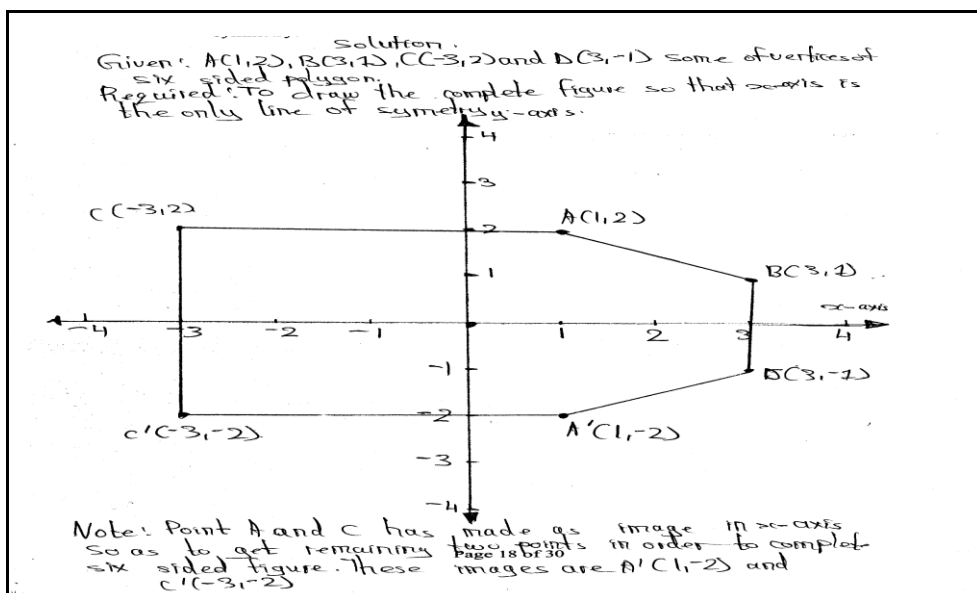 Solution.
Given: A(1,2), B(3,1), C(-3,2) and D(3,-1) some of vertices of
six sided polygon.
Required: To draw the complete figure so that x-axis is
the only line of symetry.
y-axis.
4
3
C(-3,2)
2
A(1,2)
1
B(3,1)
x-axis
-4 -3 -2 -1 1 2 3 4
-1
D(3,-1)
-2
C'(-3,-2)
A'(1,-2)
-3
-4
Note: Point A and C has made as image in x-axis
so as to get remaining two points in order to complet
Page 18 of 30
six sided figure. These images are A'(1,-2) and
C'(-3,-2)